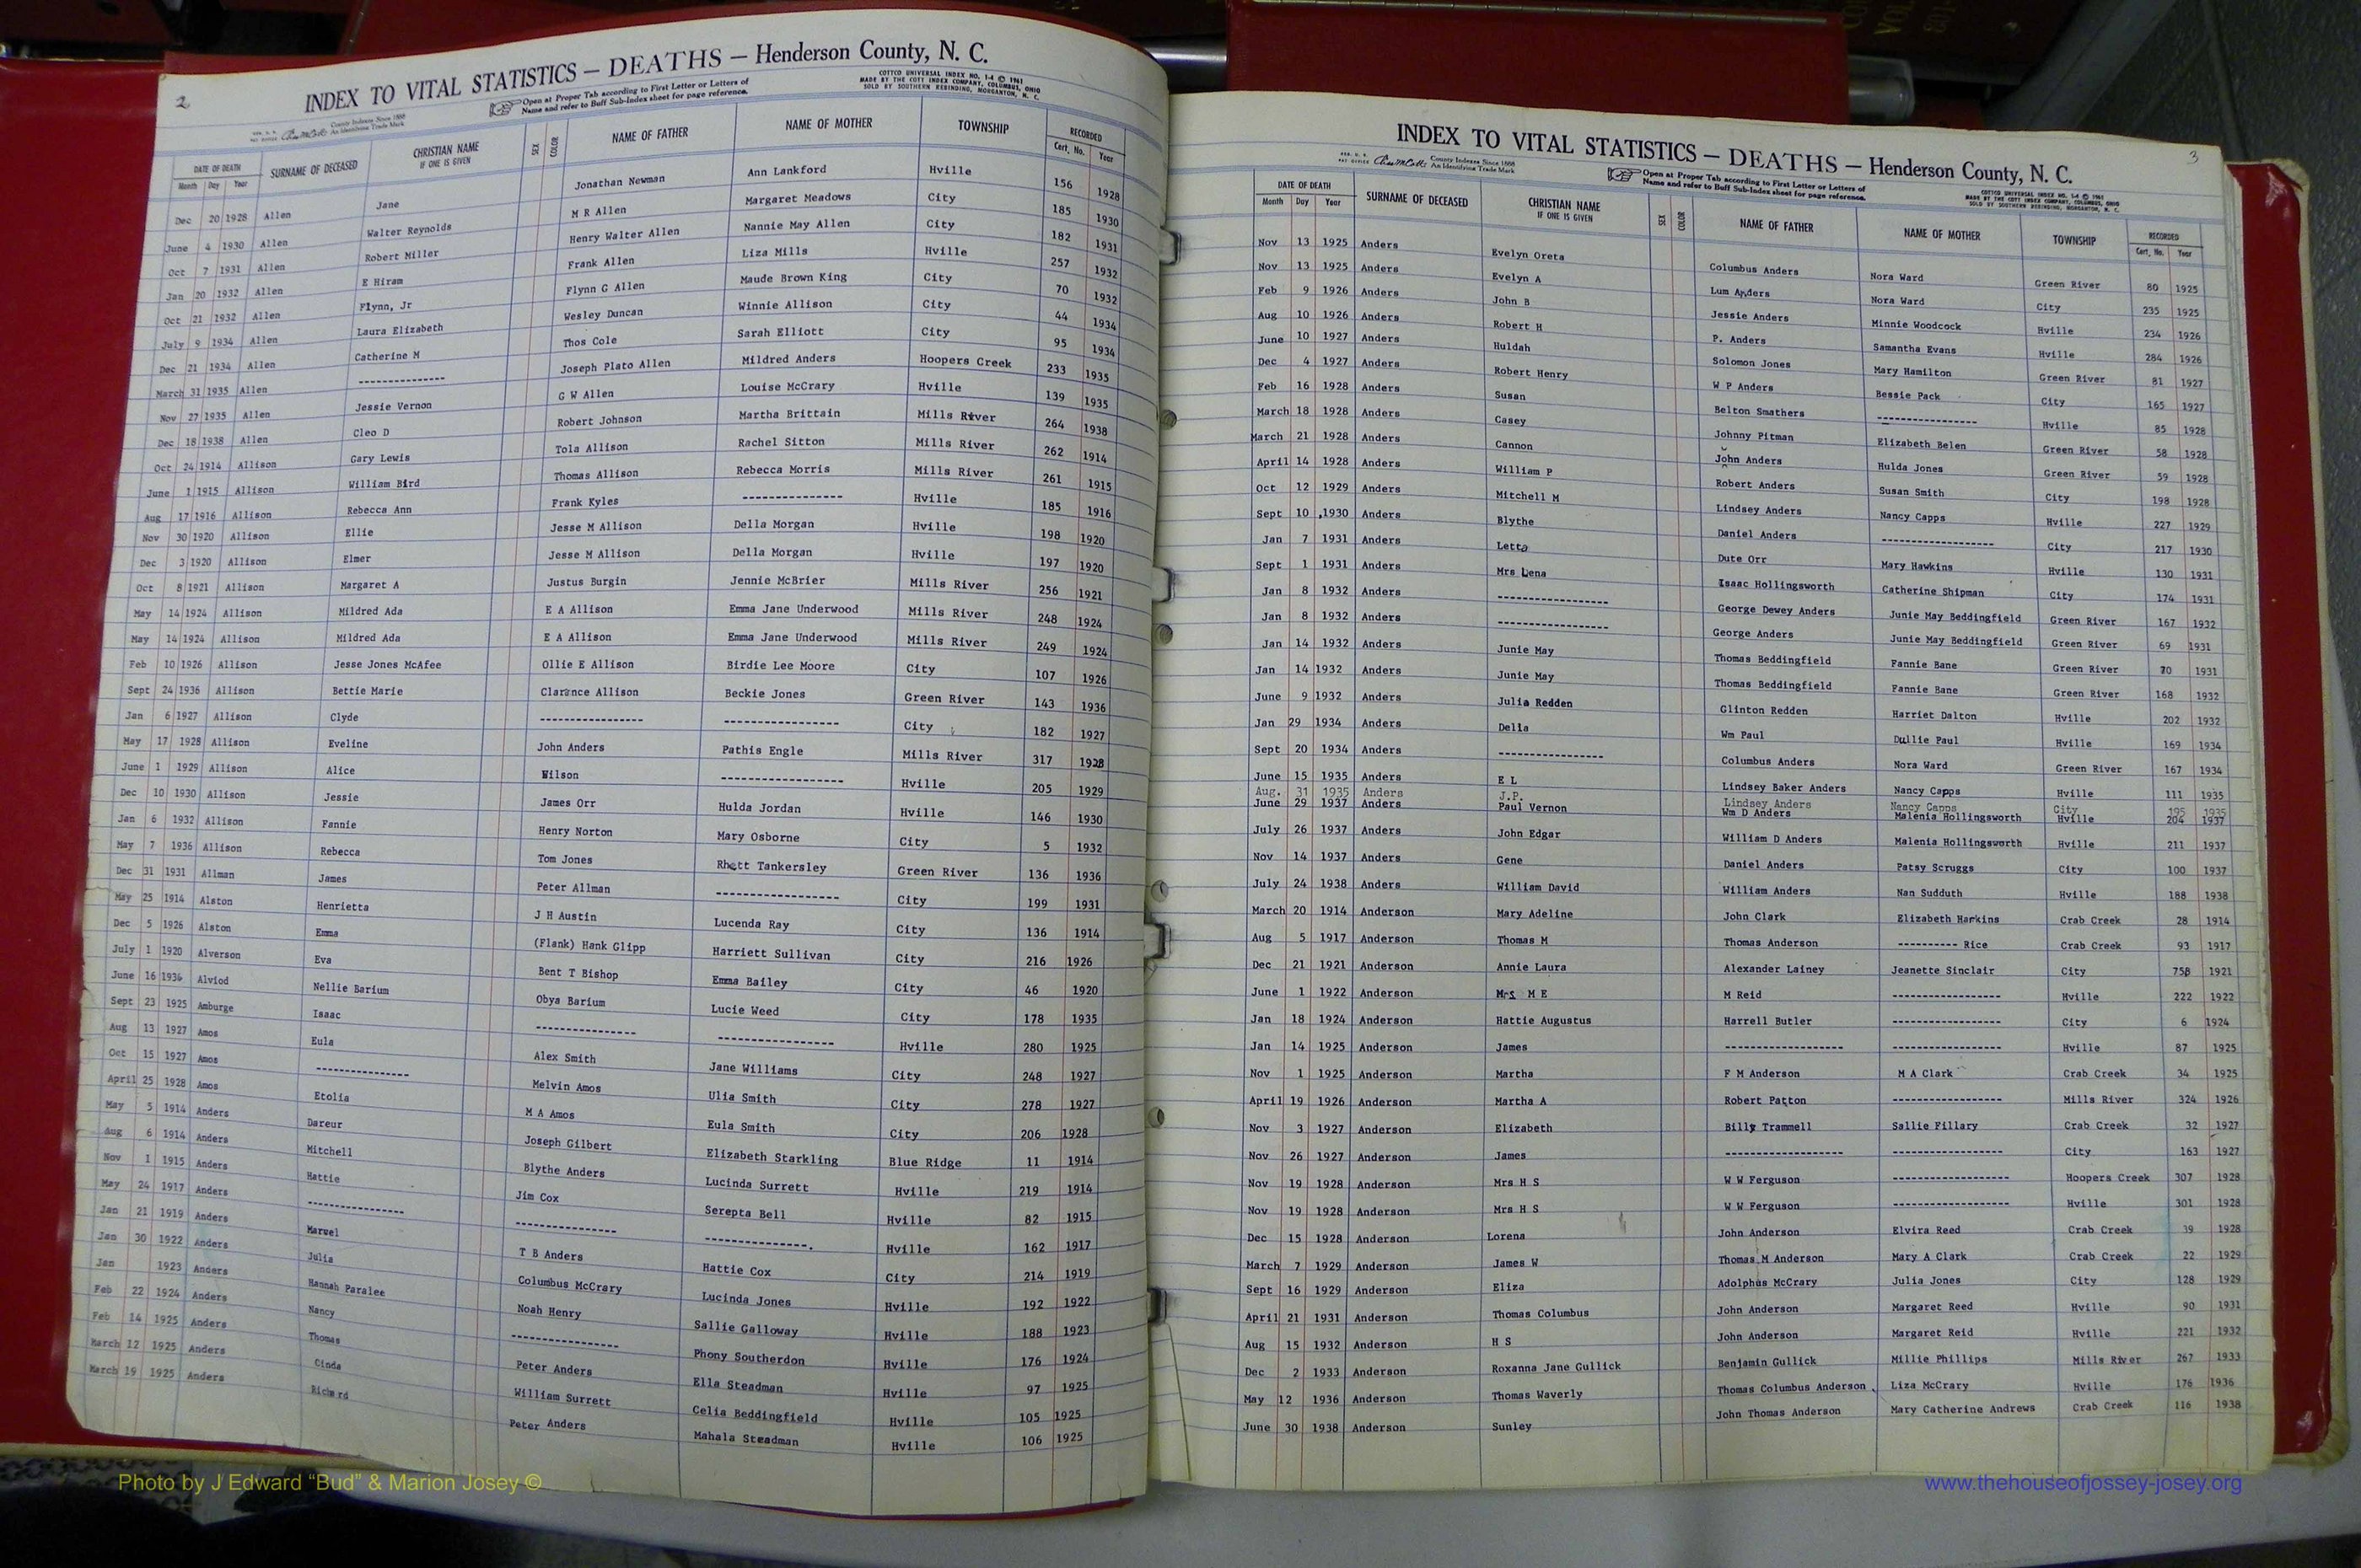 2
INDEX TO VITAL STATISTICS — DEATHS — Henderson County, N. C.
Open at Proper Tab according to First Letter or Letters of
Name and refer to Buff Sub-Index sheet for page reference.
COTTCO UNIVERSAL INDEX NO. 1-4 © 1961
MADE BY THE COTT INDEX COMPANY, COLUMBUS, OHIO
SOLD BY SOUTHERN REBINDING, MORGANTON, N. C.
County Indexes Since 1888
An Identifying Trade Mark
DATE OF DEATH SURNAME OF DECEASED CHRISTIAN NAME IF ONE IS GIVEN SEX COLOR NAME OF FATHER NAME OF MOTHER TOWNSHIP RECORDED
Month Day Year Cert. No. Year
Dec 20 1928 Allen Jane Jonathan Newman Ann Lankford Hville 156 1928
June 4 1930 Allen Walter Reynolds M R Allen Margaret Meadows City 185 1930
Oct 7 1931 Allen Robert Miller Henry Walter Allen Nannie May Allen City 182 1931
Jan 20 1932 Allen E Hiram Frank Allen Liza Mills Hville 257 1932
Oct 21 1932 Allen Flynn, Jr Flynn G Allen Maude Brown King City 70 1932
July 9 1934 Allen Laura Elizabeth Wesley Duncan Winnie Allison City 44 1934
Dec 21 1934 Allen Catherine M Thos Cole Sarah Elliott City 95 1934
March 31 1935 Allen -------------- Joseph Plato Allen Mildred Anders Hoopers Creek 233 1935
Nov 27 1935 Allen Jessie Vernon G W Allen Louise McCrary Hville 139 1935
Dec 18 1938 Allen Cleo D Robert Johnson Martha Brittain Mills River 264 1938
Oct 24 1914 Allison Gary Lewis Tola Allison Rachel Sitton Mills River 262 1914
June 1 1915 Allison William Bird Thomas Allison Rebecca Morris Mills River 261 1915
Aug 17 1916 Allison Rebecca Ann Frank Kyles --------------- Hville 185 1916
Nov 30 1920 Allison Ellie Jesse M Allison Della Morgan Hville 198 1920
Dec 3 1920 Allison Elmer Jesse M Allison Della Morgan Hville 197 1920
Oct 8 1921 Allison Margaret A Justus Burgin Jennie McBrier Mills River 256 1921
May 14 1924 Allison Mildred Ada E A Allison Emma Jane Underwood Mills River 248 1924
May 14 1924 Allison Mildred Ada E A Allison Emma Jane Underwood Mills River 249 1924
Feb 10 1926 Allison Jesse Jones McAfee Ollie E Allison Birdie Lee Moore City 107 1926
Sept 24 1936 Allison Bettie Marie Clarence Allison Beckie Jones Green River 143 1936
Jan 6 1927 Allison Clyde ---------------- ---------------- City 182 1927
May 17 1928 Allison Eveline John Anders Pathis Engle Mills River 317 1928
June 1 1929 Allison Alice Wilson ----------------- Hville 205 1929
Dec 10 1930 Allison Jessie James Orr Hulda Jordan Hville 146 1930
Jan 6 1932 Allison Fannie Henry Norton Mary Osborne City 5 1932
May 7 1936 Allison Rebecca Tom Jones Rhett Tankersley Green River 136 1936
Dec 31 1931 Allman James Peter Allman ----------------- City 199 1931
May 25 1914 Alston Henrietta J H Austin Lucenda Ray City 136 1914
Dec 5 1926 Alston Emma (Flank) Hank Glipp Harriett Sullivan City 216 1926
July 1 1920 Alverson Eva Bent T Bishop Emma Bailey City 46 1920
June 16 1936 Alviod Nellie Barium Obya Barium Lucie Weed City 178 1935
Sept 23 1925 Amburge Isaac --------------- ---------------- Hville 280 1925
Aug 13 1927 Amos Eula Alex Smith Jane Williams City 248 1927
Oct 15 1927 Amos -------------- Melvin Amos Ulia Smith City 278 1927
April 25 1928 Amos Etolia M A Amos Eula Smith City 206 1928
May 5 1914 Anders Dareur Joseph Gilbert Elizabeth Starkling Blue Ridge 11 1914
Aug 6 1914 Anders Mitchell Blythe Anders Lucinda Surrett Hville 219 1914
Nov 1 1915 Anders Hattie Jim Cox Serepta Bell Hville 82 1915
May 24 1917 Anders -------------- --------------- ---------------. Hville 162 1917
Jan 21 1919 Anders Maruel T B Anders Hattie Cox City 214 1919
Jan 30 1922 Anders Julia Columbus McCrary Lucinda Jones Hville 192 1922
Jan 1923 Anders Hannah Paralee Noah Henry Sallie Galloway Hville 188 1923
Feb 22 1924 Anders Nancy ---------------- Phony Southerdon Hville 176 1924
Feb 14 1925 Anders Thomas Peter Anders Ella Steadman Hville 97 1925
March 12 1925 Anders Cinda William Surrett Celia Beddingfield Hville 105 1925
March 19 1925 Anders Richard Peter Anders Mahala Steadman Hville 106 1925
3
INDEX TO VITAL STATISTICS — DEATHS — Henderson County, N. C.
County Indexes Since 1888
An Identifying Trade Mark
Open at Proper Tab according to First Letter or Letters of
Name and refer to Buff Sub-Index sheet for page reference.
COTTCO UNIVERSAL INDEX NO. 1-4 © 1961
MADE BY THE COTT INDEX COMPANY, COLUMBUS, OHIO
SOLD BY SOUTHERN REBINDING, MORGANTON, N. C.
DATE OF DEATH SURNAME OF DECEASED CHRISTIAN NAME IF ONE IS GIVEN SEX COLOR NAME OF FATHER NAME OF MOTHER TOWNSHIP RECORDED
Month Day Year Cert. No. Year
Nov 13 1925 Anders Evelyn Oreta Columbus Anders Nora Ward Green River 80 1925
Nov 13 1925 Anders Evelyn A Lum Anders Nora Ward City 235 1925
Feb 9 1926 Anders John B Jessie Anders Minnie Woodcock Hville 234 1926
Aug 10 1926 Anders Robert H P. Anders Samantha Evans Hville 284 1926
June 10 1927 Anders Huldah Solomon Jones Mary Hamilton Green River 81 1927
Dec 4 1927 Anders Robert Henry W P Anders Bessie Pack City 165 1927
Feb 16 1928 Anders Susan Belton Smathers ---------------- Hville 85 1928
March 18 1928 Anders Casey Johnny Pitman Elizabeth Belen Green River 58 1928
March 21 1928 Anders Cannon John Anders Hulda Jones Green River 59 1928
April 14 1928 Anders William P Robert Anders Susan Smith City 198 1928
Oct 12 1929 Anders Mitchell M Lindsey Anders Nancy Capps Hville 227 1929
Sept 10 1930 Anders Blythe Daniel Anders ------------------ City 217 1930
Jan 7 1931 Anders Letta Dute Orr Mary Hawkins Hville 130 1931
Sept 1 1931 Anders Mrs Lena Isaac Hollingsworth Catherine Shipman City 174 1931
Jan 8 1932 Anders ------------------ George Dewey Anders Junie May Beddingfield Green River 167 1932
Jan 8 1932 Anders ------------------ George Anders Junie May Beddingfield Green River 69 1931
Jan 14 1932 Anders Junie May Thomas Beddingfield Fannie Bane Green River 70 1931
Jan 14 1932 Anders Junie May Thomas Beddingfield Fannie Bane Green River 168 1932
June 9 1932 Anders Julia Redden Glinton Redden Harriet Dalton Hville 202 1932
Jan 29 1934 Anders Della Wm Paul Dullie Paul Hville 169 1934
Sept 20 1934 Anders ----------------- Columbus Anders Nora Ward Green River 167 1934
June 15 1935 Anders E L Lindsey Baker Anders Nancy Capps Hville 111 1935
Aug. 31 1935 Anders J.P. Lindsey Anders Nancy Capps City 195 1935
June 29 1937 Anders Paul Vernon Wm D Anders Malenia Hollingsworth Hville 204 1937
July 26 1937 Anders John Edgar William D Anders Malenia Hollingsworth Hville 211 1937
Nov 14 1937 Anders Gene Daniel Anders Patsy Scruggs City 100 1937
July 24 1938 Anders William David William Anders Nan Sudduth Hville 188 1938
March 20 1914 Anderson Mary Adeline John Clark Elizabeth Harkins Crab Creek 28 1914
Aug 5 1917 Anderson Thomas M Thomas Anderson ---------- Rice Crab Creek 93 1917
Dec 21 1921 Anderson Annie Laura Alexander Lainey Jeanette Sinclair City 758 1921
June 1 1922 Anderson Mrs M E M Reid ------------------ Hville 222 1922
Jan 18 1924 Anderson Hattie Augustus Harrell Butler ------------------ City 6 1924
Jan 14 1925 Anderson James ------------------- ------------------ Hville 87 1925
Nov 1 1925 Anderson Martha F M Anderson M A Clark Crab Creek 34 1925
April 19 1926 Anderson Martha A Robert Patton ------------------ Mills River 324 1926
Nov 3 1927 Anderson Elizabeth Billy Trammell Sallie Fillary Crab Creek 32 1927
Nov 26 1927 Anderson James ------------------- ------------------ City 163 1927
Nov 19 1928 Anderson Mrs H S W W Ferguson ------------------- Hoopers Creek 307 1928
Nov 19 1928 Anderson Mrs H S W W Ferguson ------------------- Hville 301 1928
Dec 15 1928 Anderson Lorena John Anderson Elvira Reed Crab Creek 39 1928
March 7 1929 Anderson James W Thomas M Anderson Mary A Clark Crab Creek 22 1929
Sept 16 1929 Anderson Eliza Adolphus McCrary Julia Jones City 128 1929
April 21 1931 Anderson Thomas Columbus John Anderson Margaret Reed Hville 90 1931
Aug 15 1932 Anderson H S John Anderson Margaret Reid Hville 221 1932
Dec 2 1933 Anderson Roxanna Jane Gullick Benjamin Gullick Millie Phillips Mills River 267 1933
May 12 1936 Anderson Thomas Waverly Thomas Columbus Anderson Liza McCrary Hville 176 1936
June 30 1938 Anderson Sunley John Thomas Anderson Mary Catherine Andrews Crab Creek 116 1938
Photo by J Edward “Bud” & Marion Josey ©
www.thehouseofjossey-josey.org